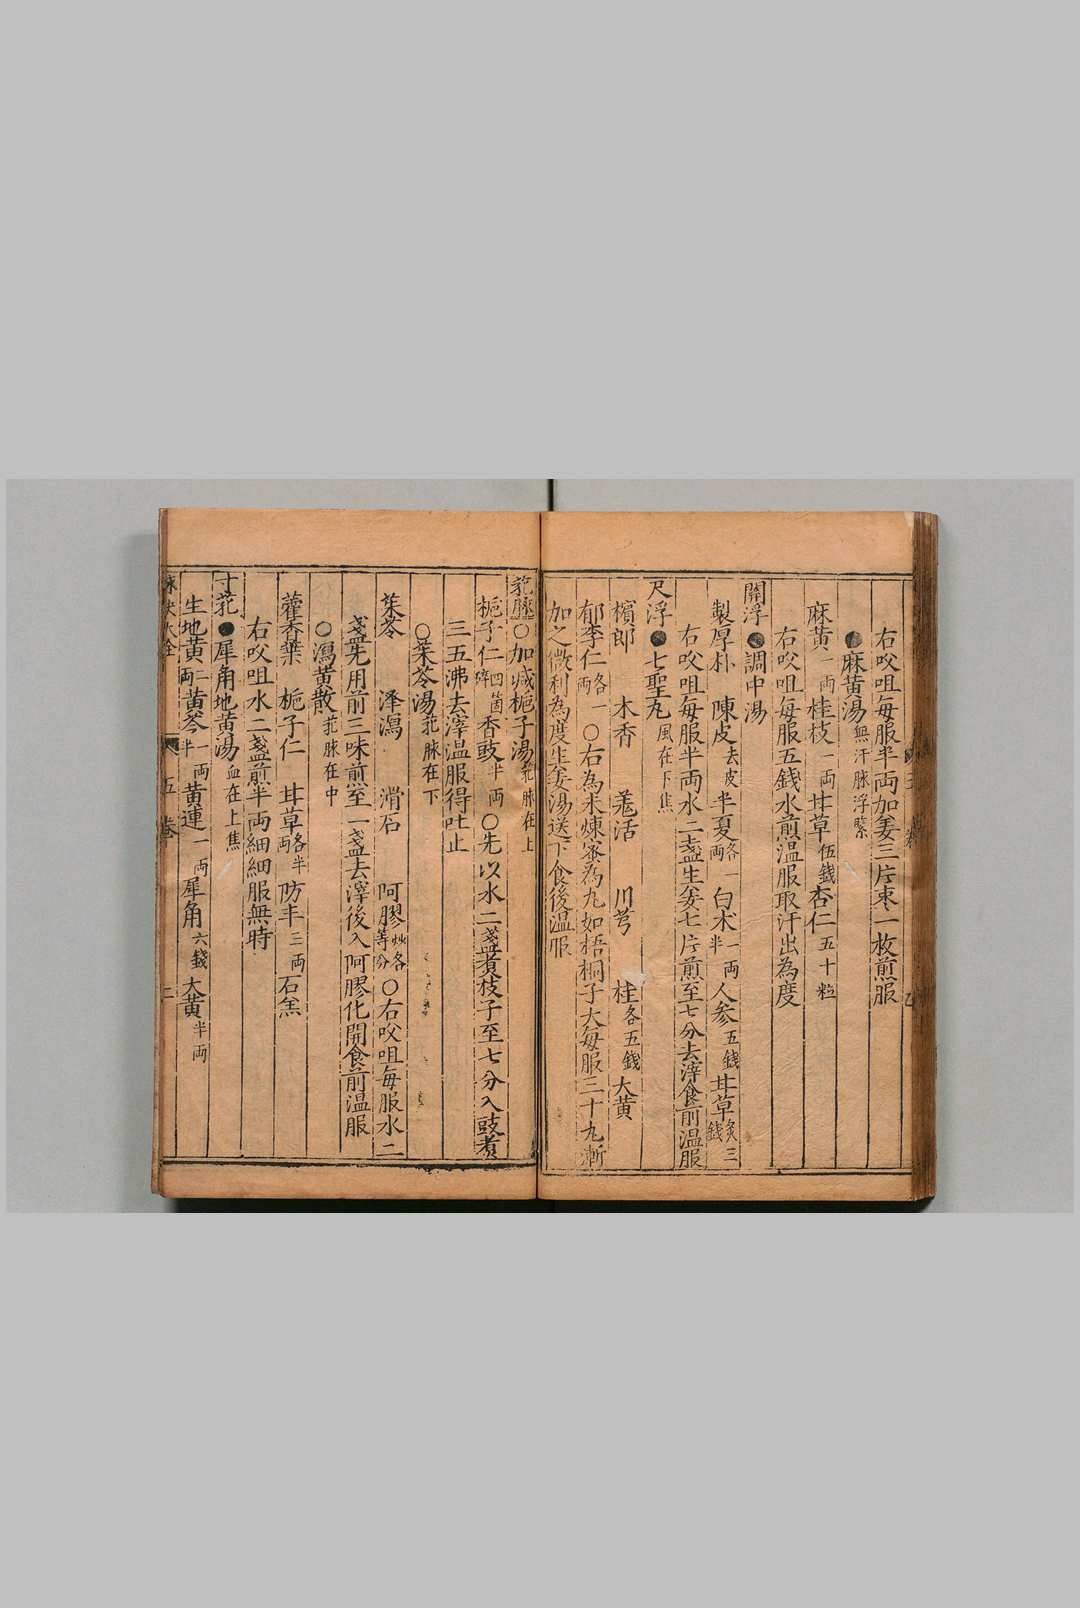 右㕮咀每服半両加姜三片枣一枚煎服
●麻黄湯無汗脉浮緊
麻黄一両桂枝一両甘草伍錢杏仁五十粒
右㕮咀每服五錢水煎温服取汗出為度
關浮●調中湯
製厚朴 陳皮去皮半夏各一両白术一両半人参五錢甘草炙三錢
右㕮咀每服半両水二盞生姜七片煎至七分去滓食前温服
尺浮●七聖丸風在下焦
檳郎 木香 羗活 川芎 桂各五錢大黄
郁李仁各一両○右為末煉蜜為丸如梧桐子大每服三十丸漸
加之微利為度生姜湯送下食後温服
芤脉○加減梔子湯芤脉在上
梔子仁四箇碎香豉半両○先以水二盞煮枝子至七分入豉煮
三五沸去滓温服得吐止
○茱苓湯芤脉在下
茱苓 泽瀉 滑石 阿膠炒各等分○右㕮咀每服水二
盞先用前三味煎至一盞去滓後入阿膠化開食前温服
○瀉黄散芤脉在中
藿香葉 梔子仁 甘草各半両防丰三両石羔
右㕮咀水二盞煎半両細細服無時
寸芤●犀角地黄湯血在上焦
生地黄二両黄芩一両半黄連一両犀角六錢大黄半両
脉决大全 五卷 二